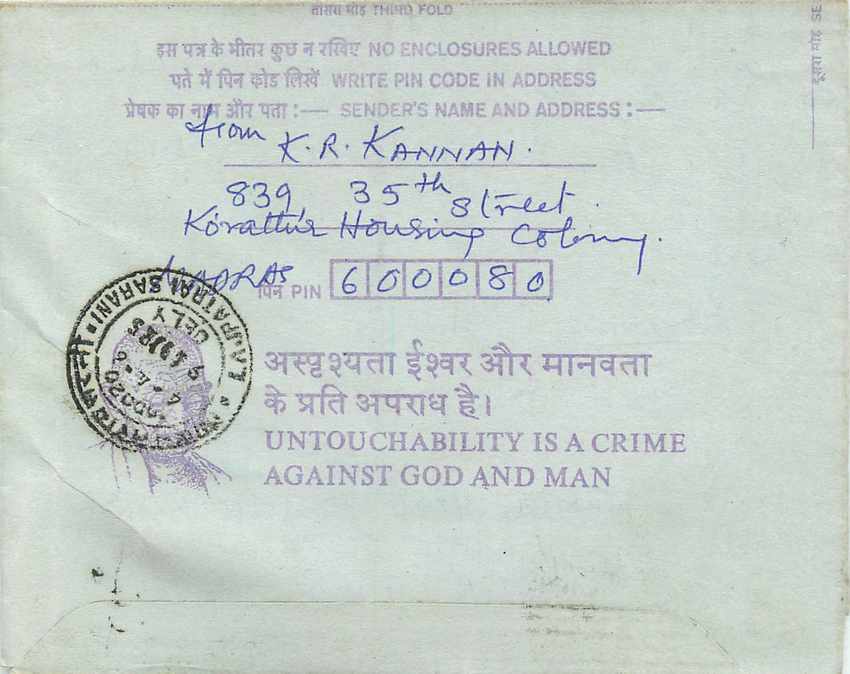 तीसरा मोड़ THIRD FOLD
इस पत्र के भीतर कुछ न रखिए NO ENCLOSURES ALLOWED
पते में पिन कोड लिखें WRITE PIN CODE IN ADDRESS
प्रेषक का नाम और पता :— SENDER'S NAME AND ADDRESS :—
from K. R. KANNAN.
839, 35th Street.
Korattur Housing Colony.
MADRAS
पिन PIN 600080
अस्पृश्यता ईश्वर और मानवता
के प्रति अपराध है।
UNTOUCHABILITY IS A CRIME
AGAINST GOD AND MAN
SARANI
DELY
दूसरा मोड़ SE